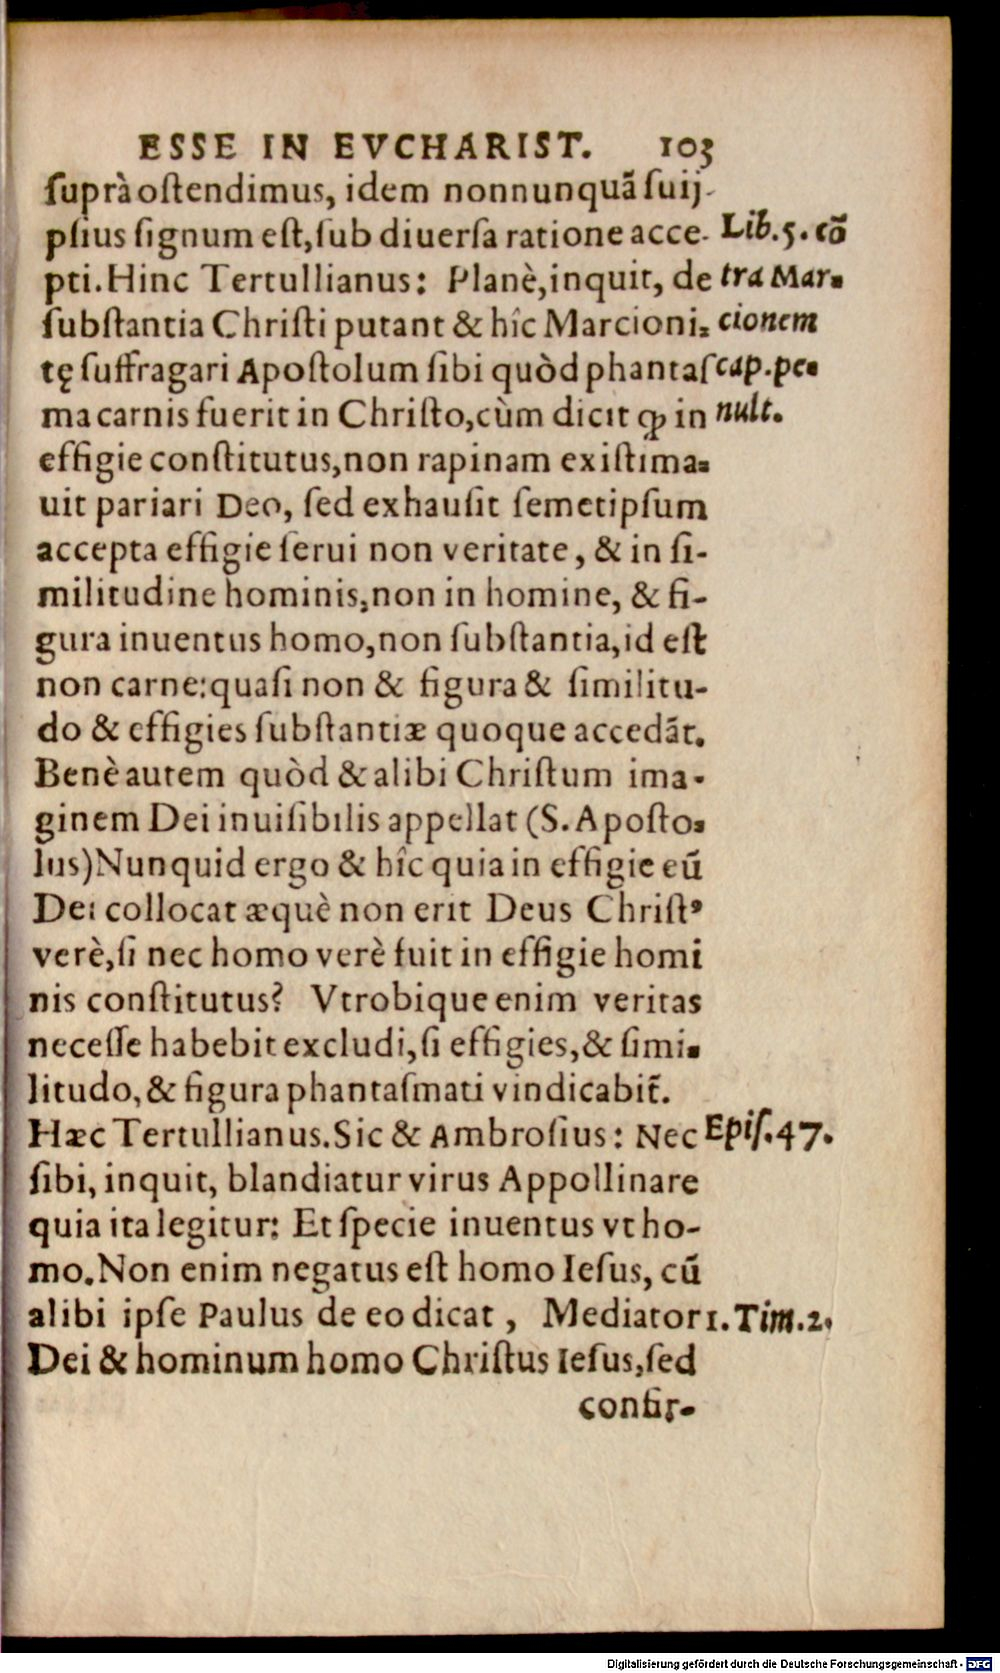 ESSE IN EVCHARIST. 103
ſuprà oſtendimus, idem nonnunquã ſuij-
pſius ſignum eſt, ſub diuerſa ratione acce-
pti. Hinc Tertullianus: Planè, inquit, de
ſubſtantia Chriſti putant & hîc Marcioni-
tę ſuffragari Apoſtolum ſibi quòd phantaſ
ma carnis fuerit in Chriſto, cùm dicit ꝙ in
effigie conſtitutus, non rapinam exiſtima-
uit pariari Deo, ſed exhauſit ſemetipſum
accepta effigie ſerui non veritate, & in ſi-
militudine hominis, non in homine, & fi-
gura inuentus homo, non ſubſtantia, id eſt
non carne: quaſi non & figura & ſimilitu-
do & effigies ſubſtantiæ quoque accedãt.
Benè autem quòd & alibi Chriſtum ima-
ginem Dei inuiſibilis appellat (S. Apoſto-
lus) Nunquid ergo & hîc quia in effigie eũ
Dei collocat æquè non erit Deus Chriſtꝰ
verè, ſi nec homo verè fuit in effigie homi
nis conſtitutus? Vtrobique enim veritas
neceſſe habebit excludi, ſi effigies, & ſimi-
litudo, & figura phantaſmati vindicabit̃.
Hæc Tertullianus. Sic & Ambroſius: Nec
ſibi, inquit, blandiatur virus Appollinare
quia ita legitur: Et ſpecie inuentus vt ho-
mo. Non enim negatus eſt homo Ieſus, cũ
alibi ipſe Paulus de eo dicat, Mediator
Dei & hominum homo Chriſtus Ieſus, ſed
confir-
Lib. 5. cõ
tra Mar-
cionem
cap. pe-
nult.
Epiſ. 47.
1. Tim. 2.
Digitalisierung gefördert durch die Deutsche Forschungsgemeinschaft - DFG